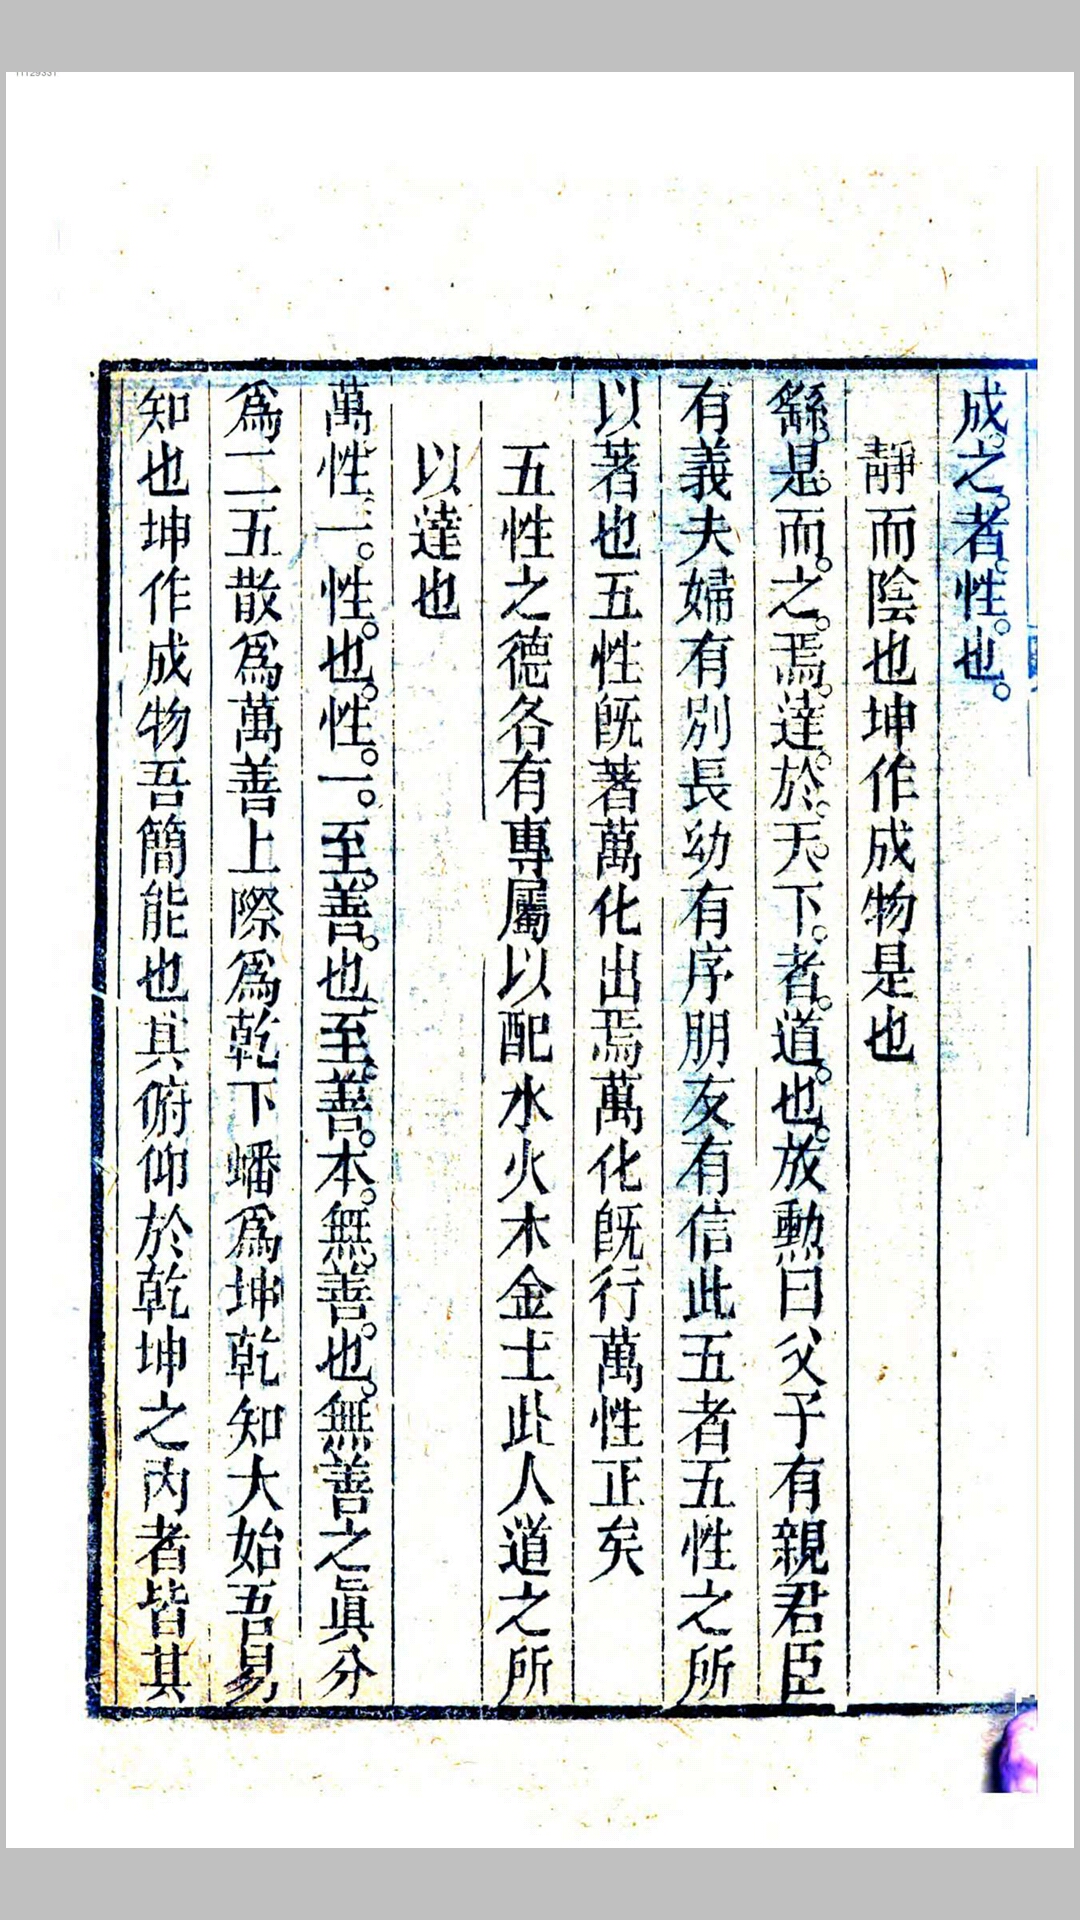 11129331
成。之。者。性。也。
靜而陰也坤作成物是也
繇。是。而。之。焉。達。於。天。下。者。道。也。放勲曰父子有親君臣
有義夫婦有別長幼有序朋友有信此五者五性之所
以著也五性旣著萬化出焉萬化旣行萬性正矣
五性之德各有專屬以配水火木金土此人道之所
以達也
萬性一。性。也。性。一。至。善。也至。善。本。無。善。也。無善之眞分
爲二五散爲萬善上際爲乾下蟠爲坤乾知大始吾易
知也坤作成物吾簡能也其俯仰於乾坤之內者皆其